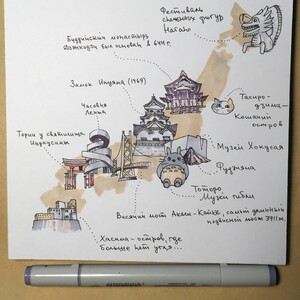 Фестиваль
снежных фигур
Нагано
Буддийский монастырь
был основан в 644 г.
Замок Инуяма (1469)
Тасиро-
дзима-
Кошачий
остров
Часовня
Лента
Тории у святилища
Ицукусима
Музей Хокусая
Фудзияма
Тоторо
Музей Гибли
Висячий мост Акаси-Кайкё, самый длинный
подвесной мост 3911 м.
Хасима-остров, где
больше нет угля...